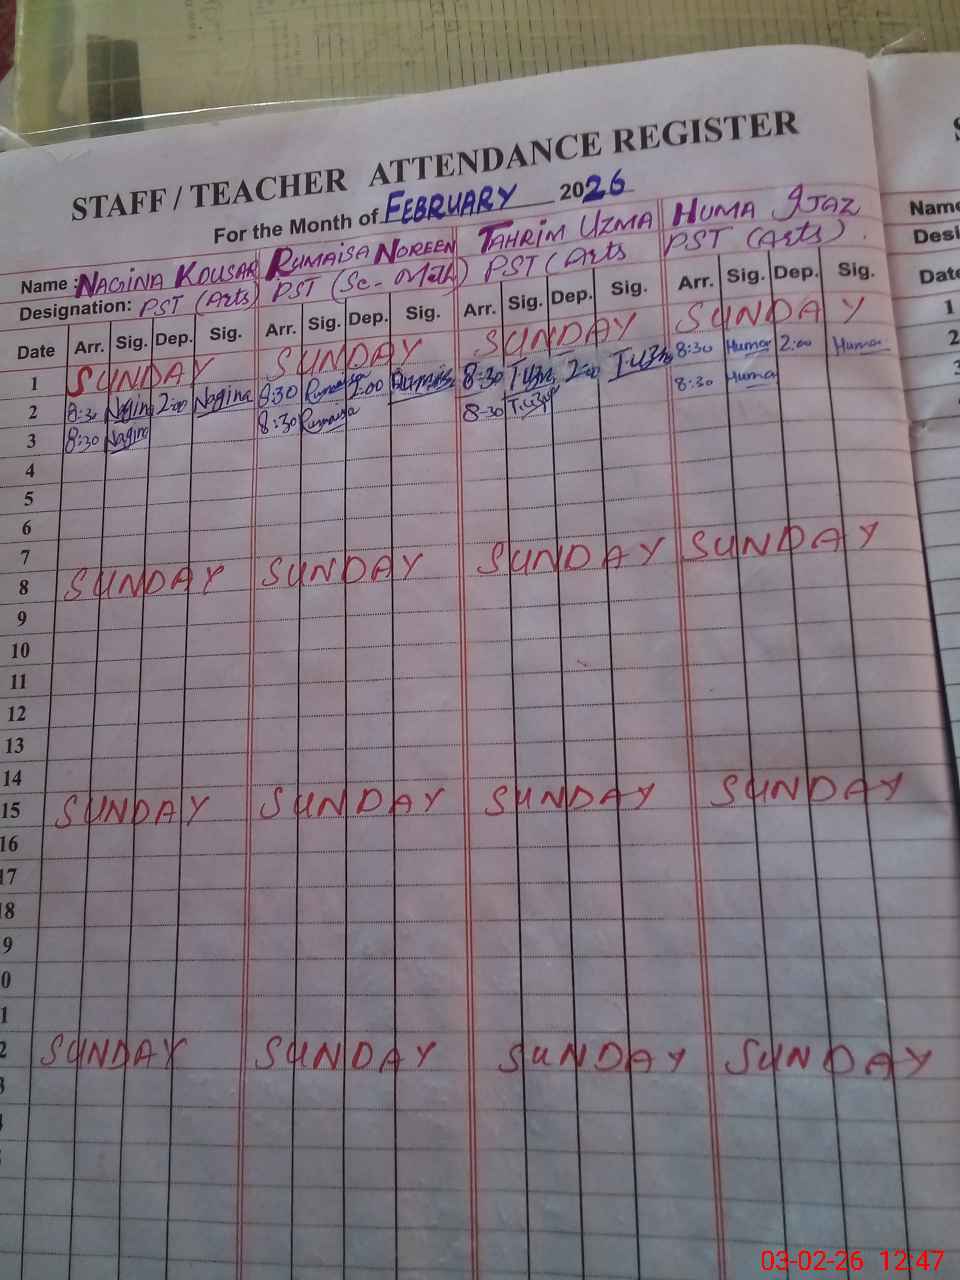 STAFF / TEACHER ATTENDANCE REGISTER
For the Month of FEBRUARY 2026
Name : NAGINA KOUSAR RUMAISA NOREEN TAHRIM UZMA HUMA IJAZ
Designation: PST (Arts) PST (Sc - Math) PST (Arts PST (Arts).
Date Arr. Sig. Dep. Sig. Arr. Sig. Dep. Sig. Arr. Sig. Dep. Sig. Arr. Sig. Dep. Sig.
1 SUNDAY SUNDAY SUNDAY SUNDAY
2 8:30 Nagina 2:00 Nagina 8:30 Rumaisa 2:00 Rumaisa 8:30 T.uzma 2:00 T.uzma 8:30 Huma 2:00 Huma
3 8:30 Nagina 8:30 Rumaisa 8:30 T.uzma 8:30 Huma
4
5
6
7
8 SUNDAY SUNDAY SUNDAY SUNDAY
9
10
11
12
13
14
15 SUNDAY SUNDAY SUNDAY SUNDAY
16
17
18
9
0
1
2 SUNDAY SUNDAY SUNDAY SUNDAY
3
Name
Desi
Date
1
2
03-02-26 12:47